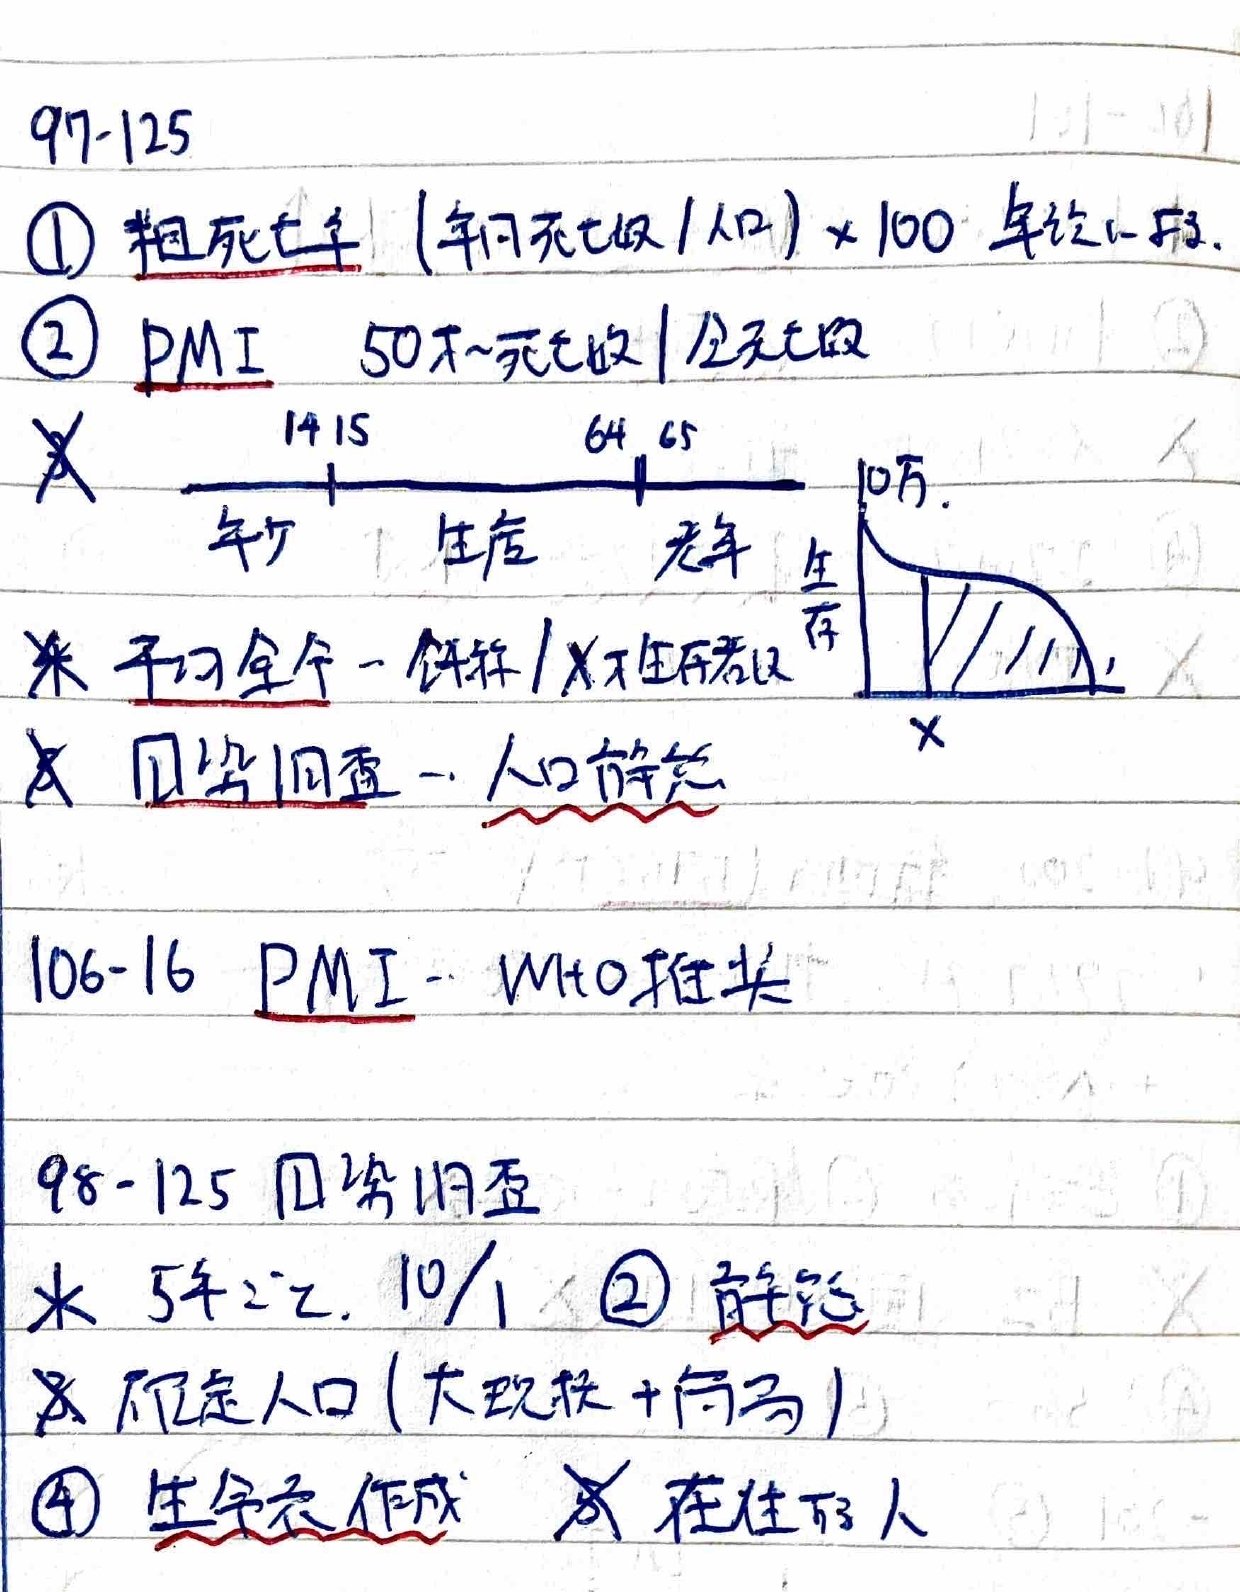 97-125
① 粗死亡率 (年間死亡数/人口) × 100 年齢による.
② PMI 50才~死亡数/全死亡数
14 15 64 65
年少 生産 老年
10万.
生存
X
平均余命 - 斜線/X才生存者数
国勢調査 … 人口静態
106-16 PMI … WHO推奨
98-125 国勢調査
5年ごと. 10/1 ② 静態
確定人口(大規模+
④ 生命表作成 在住する人